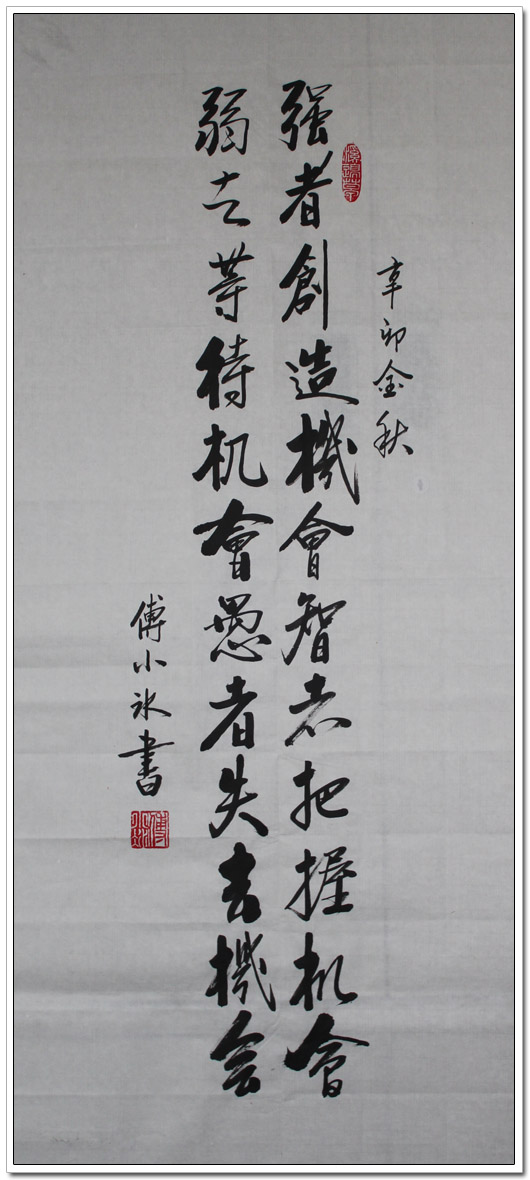 辛卯金秋
强者創造機會智者把握机會
弱者等待机會愚者失去機会
傅小冰書